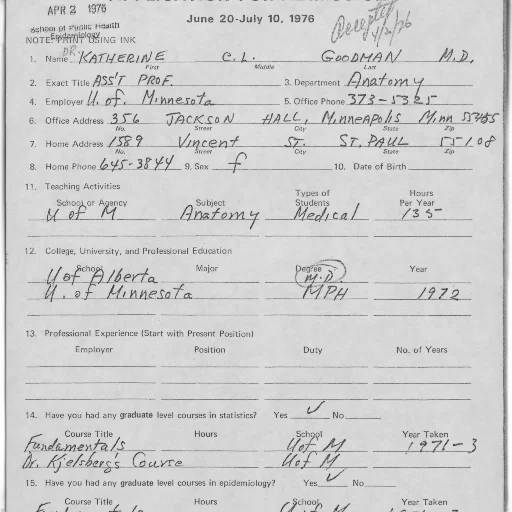 June 20-July 10, 1976
APR 2 1976
Accepted
4/2/76
School of Public Health
Epidemiology
NOTE: PRINT USING INK
DR.
1. Name KATHERINE C. L. GOODMAN M.D.
First Middle Last
2. Exact Title ASS'T PROF. 3. Department Anatomy
4. Employer U. of. Minnesota 5. Office Phone 373-5325
6. Office Address 356 JACKSON HALL, Minneapolis Minn 55455
No. Street City State Zip
7. Home Address 1589 Vincent ST. ST. PAUL 55108
No. Street City State Zip
8. Home Phone 645-3844 9. Sex f 10. Date of Birth
11. Teaching Activities
School or Agency Subject Types of Students Hours Per Year
U of M Anatomy Medical 135
12. College, University, and Professional Education
School Major Degree Year
U of Alberta M.D.
U. of Minnesota MPH 1972
13. Professional Experience (Start with Present Position)
Employer Position Duty No. of Years
14. Have you had any graduate level courses in statistics? Yes ✓ No
Course Title Hours School Year Taken
Fundamentals U of M 1971-3
Dr. Kjelsberg's Course U of M
15. Have you had any graduate level courses in epidemiology? Yes ✓ No
Course Title Hours School Year Taken